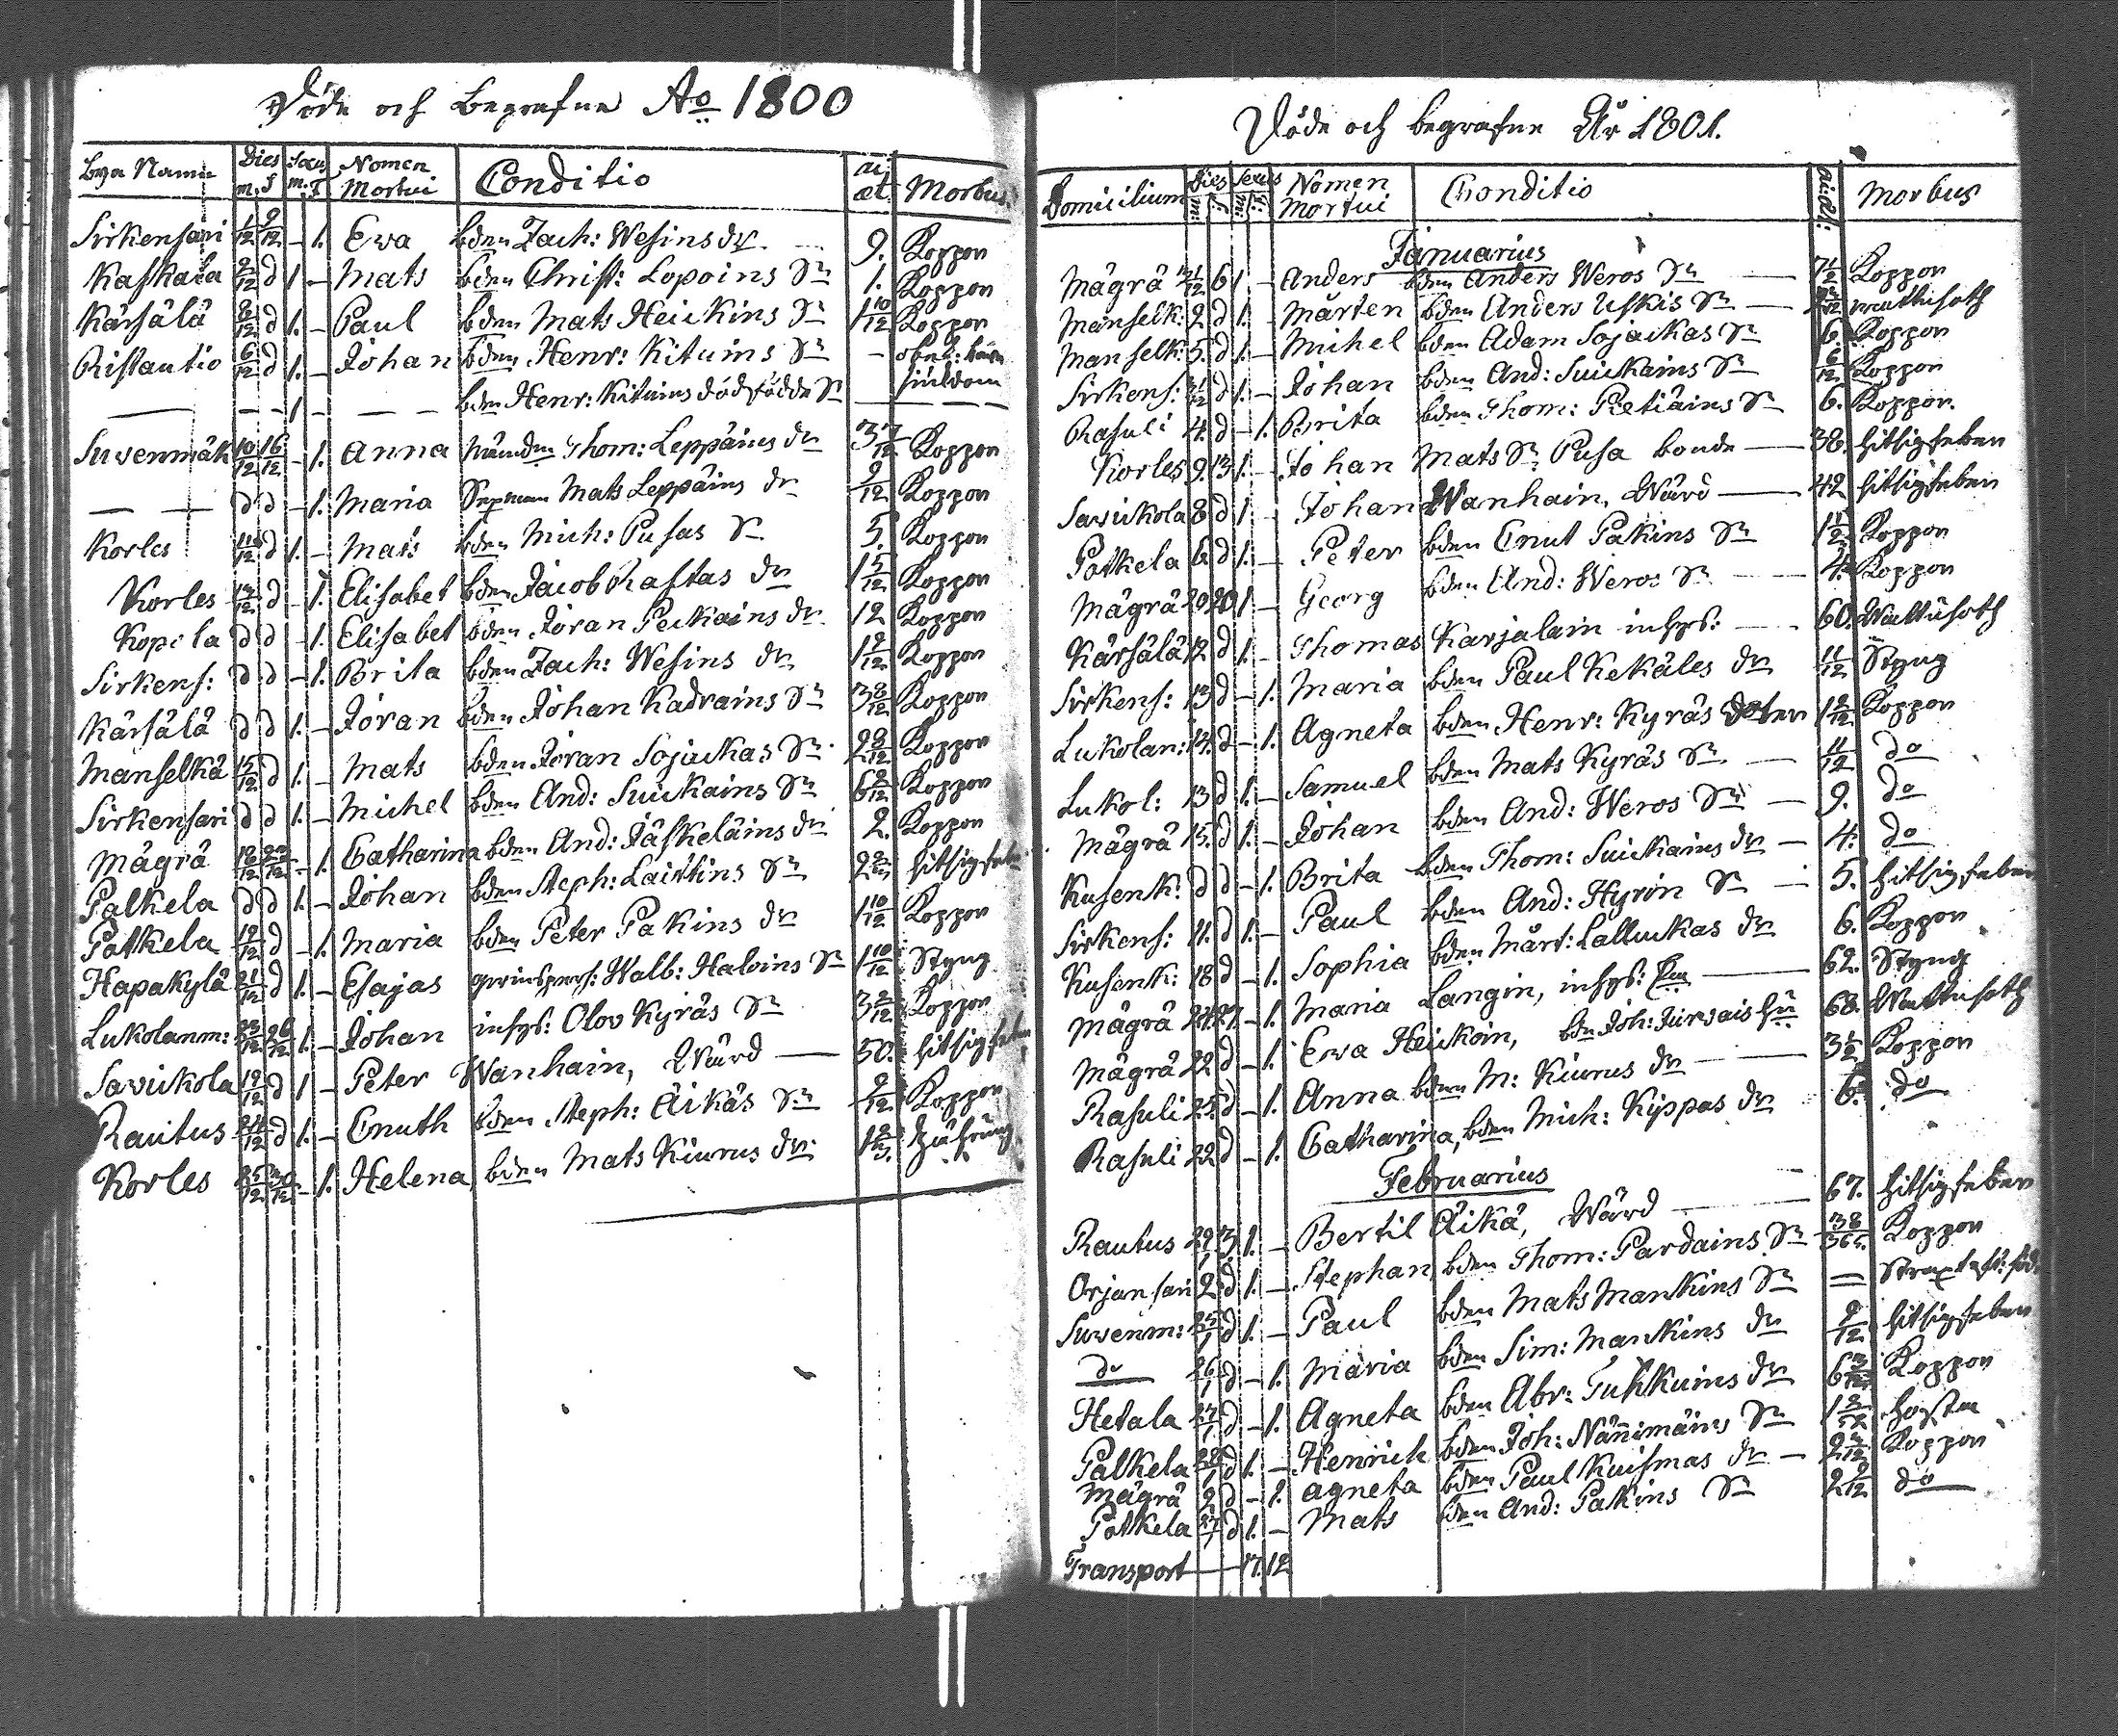 Döde och Begrafne Ao 1800
Bya Namn Dies m. f Sexus m. f Nomen Mortui Conditio æt. Morbus
Sirkensari 1/12 9/12 – 1. Eva bden Zach: Wesins dr 9. Koppor
Kaskaala 2/12 d 1. – Mats bden Christ: Lopoins Sn 1. Koppor
Kärsälä 8/12 d 1. – Paul bden Mats Heickins Sn 1 10/12 Koppor
Ristautio 6/12 d 1. – Johan bden Henr: Kituins Sn – obek: barn siukdom
– – 1 – – – bden Henr: Kituins dödfödde Sn
Suvenmäk 10/12 16/12 – 1. Anna Nämden Thom: Leppäins dr 3 7/12 Koppor
– – d d – 1. Maria Mats Leppäins dr 9/12 Koppor
Korles 11/12 d 1. – Mats bden Mich: Pusas Sn 5. Koppor
Korles 14/12 d – 1. Elisabet bden Jacob Rastas dr 1 5/12 Koppor
Kopela d d – 1. Elisabet bden Jöran Peckains dr 12 Koppor
Sirkens: d d – 1. Brita bden Zach: Wesins dr 1 9/12 Koppor
Kärsälä d d 1. – Jöran bden Johan Kadrains Sn 3 8/12 Koppor
Manselkä 15/12 d 1. – Mats bden Jöran Sojuckas Sn 2 8/12 Koppor
Sirkensari d d 1. – Michel bden And: Suickains Sn 6 9/12 Koppor
Mägrä 18/12 23/12 – 1. Catharina bden And: Jäskeläins dr 2. Koppor
Palkela d d 1. – Johan bden Steph: Laittins Sn hitsig feb
Patkela 19/12 d – 1. Maria bden Peter Pakins dr 1 10/12 Koppor
Hapakylä 21/12 d 1. – Esajas Walb: Haloins Sn 1 10/12 Styng
Lukolanm: 23/12 26/12 1. – Johan inhys: Olov Kyräs Sn 3 2/12 Koppor
Savickola 19/12 d 1 – Peter Wanhain, Wärd – 50. hitsig feber
Rautus 24/12 d 1. – Cnuth bden Steph: Äikäs Sn 9/12 Koppor
Korles 25/12 30/12 – 1. Helena, bden Mats Kiurus dr
Döde och begrafne År 1801.
Domicilium Dies m: f: Sexus m: f: Nomen Mortui Conditio Morbus
Januarius
Mägrä 31/12 6 1 – Anders bden Anders Weros Sn – 7 1/2 Koppor
Manselk: 2 d 1. – Mårten bden Anders Uskis Sn – wattusoth
Manselk: 5. d 1. – Michel bden Adam Sojuckas Sn 6. Koppor
Sirkens: 31/12 d 1. – Johan bden And: Suickains Sn 6/12 Koppor
Rasuli 4. d – 1. Brita bden Thom: Pietiäins Sn 6. Koppor.
Korles 9. 13 1. – Johan Mats Sn Pusa bonde – 38. hitsig feber
Savickola 8 d 1. – Johan Wanhain, Wärd – 42 hitsig feber
Patkela 6 d 1. – Peter bden Cnut Pakins Sn 1 1/2 Koppor
Mägrä 20 20 1. – Georg bden And: Weros Sn – 4. Koppor
Kärsälä 12 d 1. – Thomas Karjalain inhys: – 60. Wattusoth
Sirkens: 13 d – 1. Maria bden Paul Kekäles dr 11/12 Styng
Lukolan: 14. d – 1. Agneta bden Henr: Kyräs doter 1 9/12 Koppor
Lukol: 13 d 1. – Samuel bden Mats Kyräs Sn – 11/12 do
Mägrä 15. d 1. – Johan bden And: Weros Sn – 9. do
Kusenk: d d – 1. Brita bden Thom: Suickains dr – 4. do
Sirkens: 11. d 1. – Paul bden And: Hyrön Sn – 5. hitsig feber
Kusenk: 18 d – 1. Sophia bden Mårt: Lalluckas dr 6. Koppor
Mägrä 24. 27. – 1. Maria Langin, inhys: – 62. Styng
Mägrä 22 d – 1. Eva Heickoin, bden Joh: Jurvais hu 68. Wattusoth
Rasuli 25. d – 1. Anna bden M: Kiurus dr – 3 1/2 Koppor
Rasuli 22 d – 1. Catharina, bden Mich: Kyppas dr 6. do
Februarius
Rautus 29/1 3. 1. – Bertil Äikä, Wärd – 67. hitsig feber
Orjansari 2 d 1. – Stephan, bden Thom: Pardains Sn 38/365. Koppor
Suvenm: 25/1 d 1. – Paul bden Mats Manskins Sn – Strax eft: föd.
do 26/1 d – 1. Maria bden Sim: Manskins dr 9/12 hitsig feber
Hetala 27/1 d – 1. Agneta bden Abr: Tuhkuins dr 6 3/12 Koppor
Palkela 28/1 d 1. – Henrich bden Joh: Nännimäins Sn hosta
Mägrä 2 d – 1. Agneta bden Paul Kuismas dr – Koppor
Patkela 27/1 d 1. – Mats bden And: Pakins Sn 2 9/12 do
Transport – 17. 12